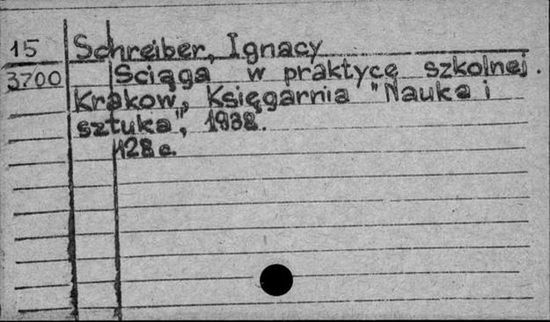 15 Schreiber, Ignacy
3700 Ściąga w praktyce szkolnej.
Kraków, Księgarnia "Nauka i
sztuka", 1938.
128 c.